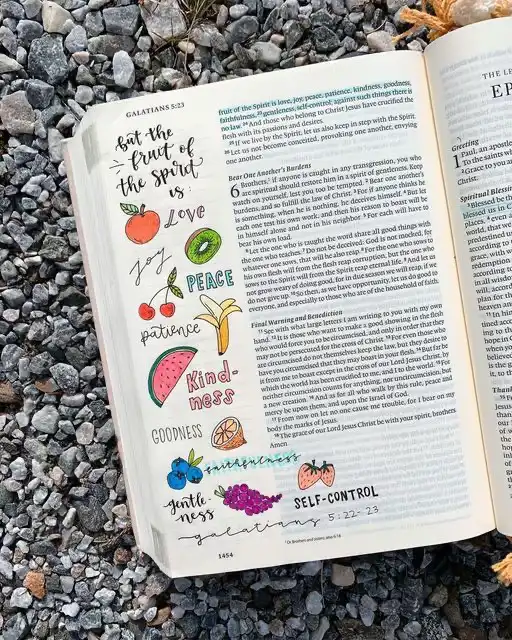 GALATIANS 5:23
but the
fruit of
the spirit
is:
Love
Joy
PEACE
patience
Kind-
ness
GOODNESS
faithfulness
gentle-
ness
SELF-CONTROL
galatians 5:22-23
1454
fruit of the Spirit is love, joy, peace, patience, kindness, goodness,
faithfulness, 23 gentleness, self-control; against such things there is
no law. 24 And those who belong to Christ Jesus have crucified the
flesh with its passions and desires.
25 If we live by the Spirit, let us also keep in step with the Spirit.
26 Let us not become conceited, provoking one another, envying
one another.
Bear One Another's Burdens
6 Brothers, if anyone is caught in any transgression, you who
are spiritual should restore him in a spirit of gentleness. Keep
watch on yourself, lest you too be tempted. 2 Bear one another's
burdens, and so fulfill the law of Christ. 3 For if anyone thinks
he is something, when he is nothing, he deceives himself. 4 But let
each one test his own work, and then his reason to boast will be
in himself alone and not in his neighbor. 5 For each will have to
bear his own load.
6 Let the one who is taught the word share all good things with
the one who teaches. 7 Do not be deceived: God is not mocked, for
whatever one sows, that will he also reap. 8 For the one who sows to
his own flesh will from the flesh reap corruption, but the one who
sows to the Spirit will from the Spirit reap eternal life. 9 And let us
not grow weary of doing good, for in due season we will reap, if we
do not give up. 10 So then, as we have opportunity, let us do good to
everyone, and especially to those who are of the household of faith.
Final Warning and Benediction
11 See with what large letters I am writing to you with my own
hand. 12 It is those who want to make a good showing in the flesh
who would force you to be circumcised, and only in order that they
may not be persecuted for the cross of Christ. 13 For even those who
are circumcised do not themselves keep the law, but they desire to
have you circumcised that they may boast in your flesh. 14 But far be
it from me to boast except in the cross of our Lord Jesus Christ, by
which the world has been crucified to me, and I to the world. 15 For
neither circumcision counts for anything, nor uncircumcision, but
a new creation. 16 And as for all who walk by this rule, peace and
mercy be upon them, and upon the Israel of God.
17 From now on let no one cause me trouble, for I bear on my
body the marks of Jesus.
18 The grace of our Lord Jesus Christ be with your spirit, brothers.
Amen.
THE LE
EP
Greeting
1 Paul, an apostle
To the saints
Grace to you a
Christ.
Spiritual Blessin
3 Blessed be th
blessed us in C